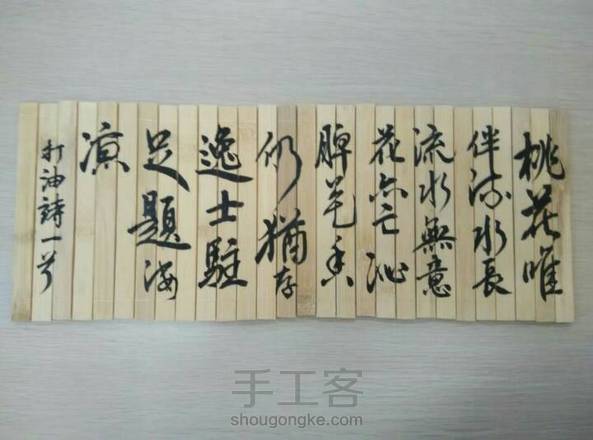 桃花唯
伴流水長
流水無意
花亦亡沁
脾香
仍猶存
逸士駐
足題
涼
打油詩一首
手工客
shougongke.com